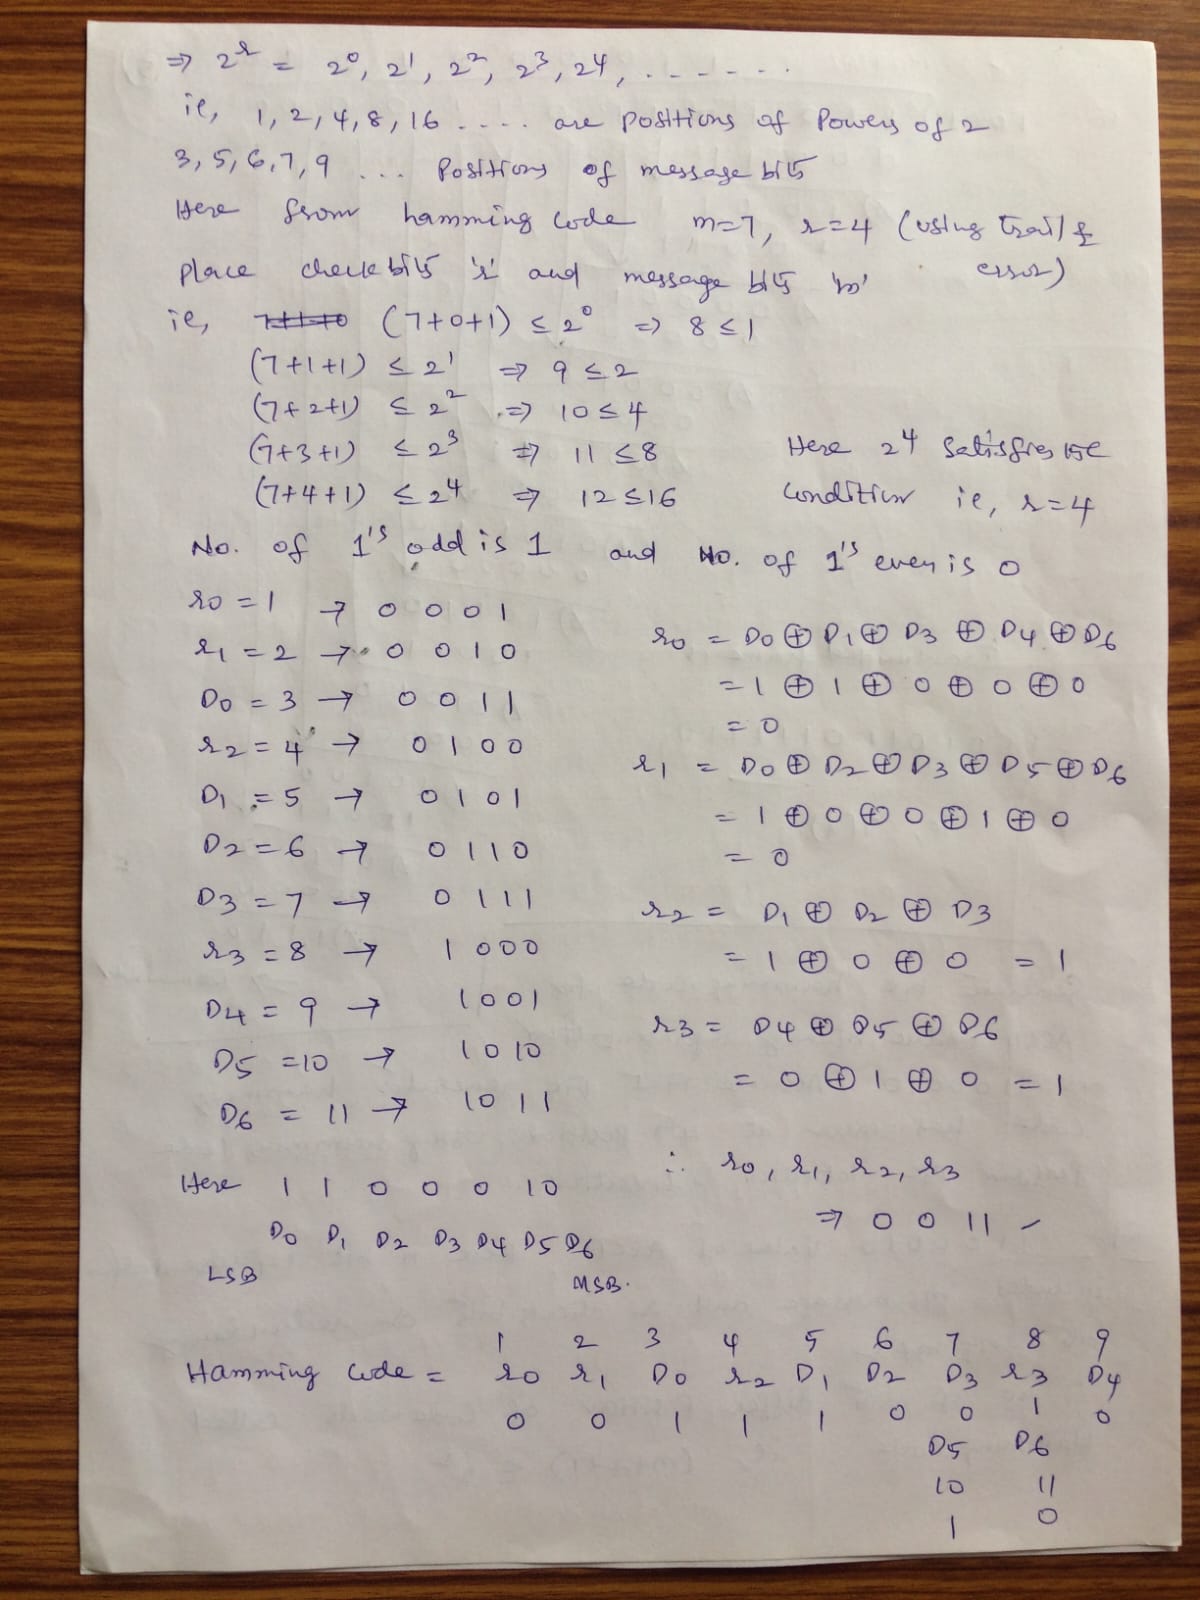 ⇒ 2^r = 2^0, 2^1, 2^2, 2^3, 2^4, - - - - - -
ie, 1, 2, 4, 8, 16 .... are positions of Powers of 2
3, 5, 6, 7, 9 ... Positions of message bits
Here from hamming code m=7, r=4 (using trail & error)
place check bits 'r' and message bits 'm'
ie, (7+0+1) ≤ 2^0 ⇒ 8 ≤ 1
(7+1+1) ≤ 2^1 ⇒ 9 ≤ 2
(7+2+1) ≤ 2^2 ⇒ 10 ≤ 4
(7+3+1) ≤ 2^3 ⇒ 11 ≤ 8
(7+4+1) ≤ 2^4 ⇒ 12 ≤ 16
Here 2^4 satisfies the
condition ie, r=4
No. of 1's odd is 1 and No. of 1's even is 0
r0 = 1 → 0 0 0 1
r1 = 2 → 0 0 1 0
D0 = 3 → 0 0 1 1
r2 = 4 → 0 1 0 0
D1 = 5 → 0 1 0 1
D2 = 6 → 0 1 1 0
D3 = 7 → 0 1 1 1
r3 = 8 → 1 0 0 0
D4 = 9 → 1 0 0 1
D5 = 10 → 1 0 1 0
D6 = 11 → 1 0 1 1
r0 = D0 ⊕ D1 ⊕ D3 ⊕ D4 ⊕ D6
= 1 ⊕ 1 ⊕ 0 ⊕ 0 ⊕ 0
= 0
r1 = D0 ⊕ D2 ⊕ D3 ⊕ D5 ⊕ D6
= 1 ⊕ 0 ⊕ 0 ⊕ 1 ⊕ 0
= 0
r2 = D1 ⊕ D2 ⊕ D3
= 1 ⊕ 0 ⊕ 0 = 1
r3 = D4 ⊕ D5 ⊕ D6
= 0 ⊕ 1 ⊕ 0 = 1
∴ r0, r1, r2, r3
⇒ 0 0 1 1
Here 1 1 0 0 0 1 0
D0 D1 D2 D3 D4 D5 D6
LSB MSB.
1 2 3 4 5 6 7 8 9
Hamming Code = r0 r1 D0 r2 D1 D2 D3 r3 D4
0 0 1 1 1 0 0 1 0
D5 D6
10 11
1 0